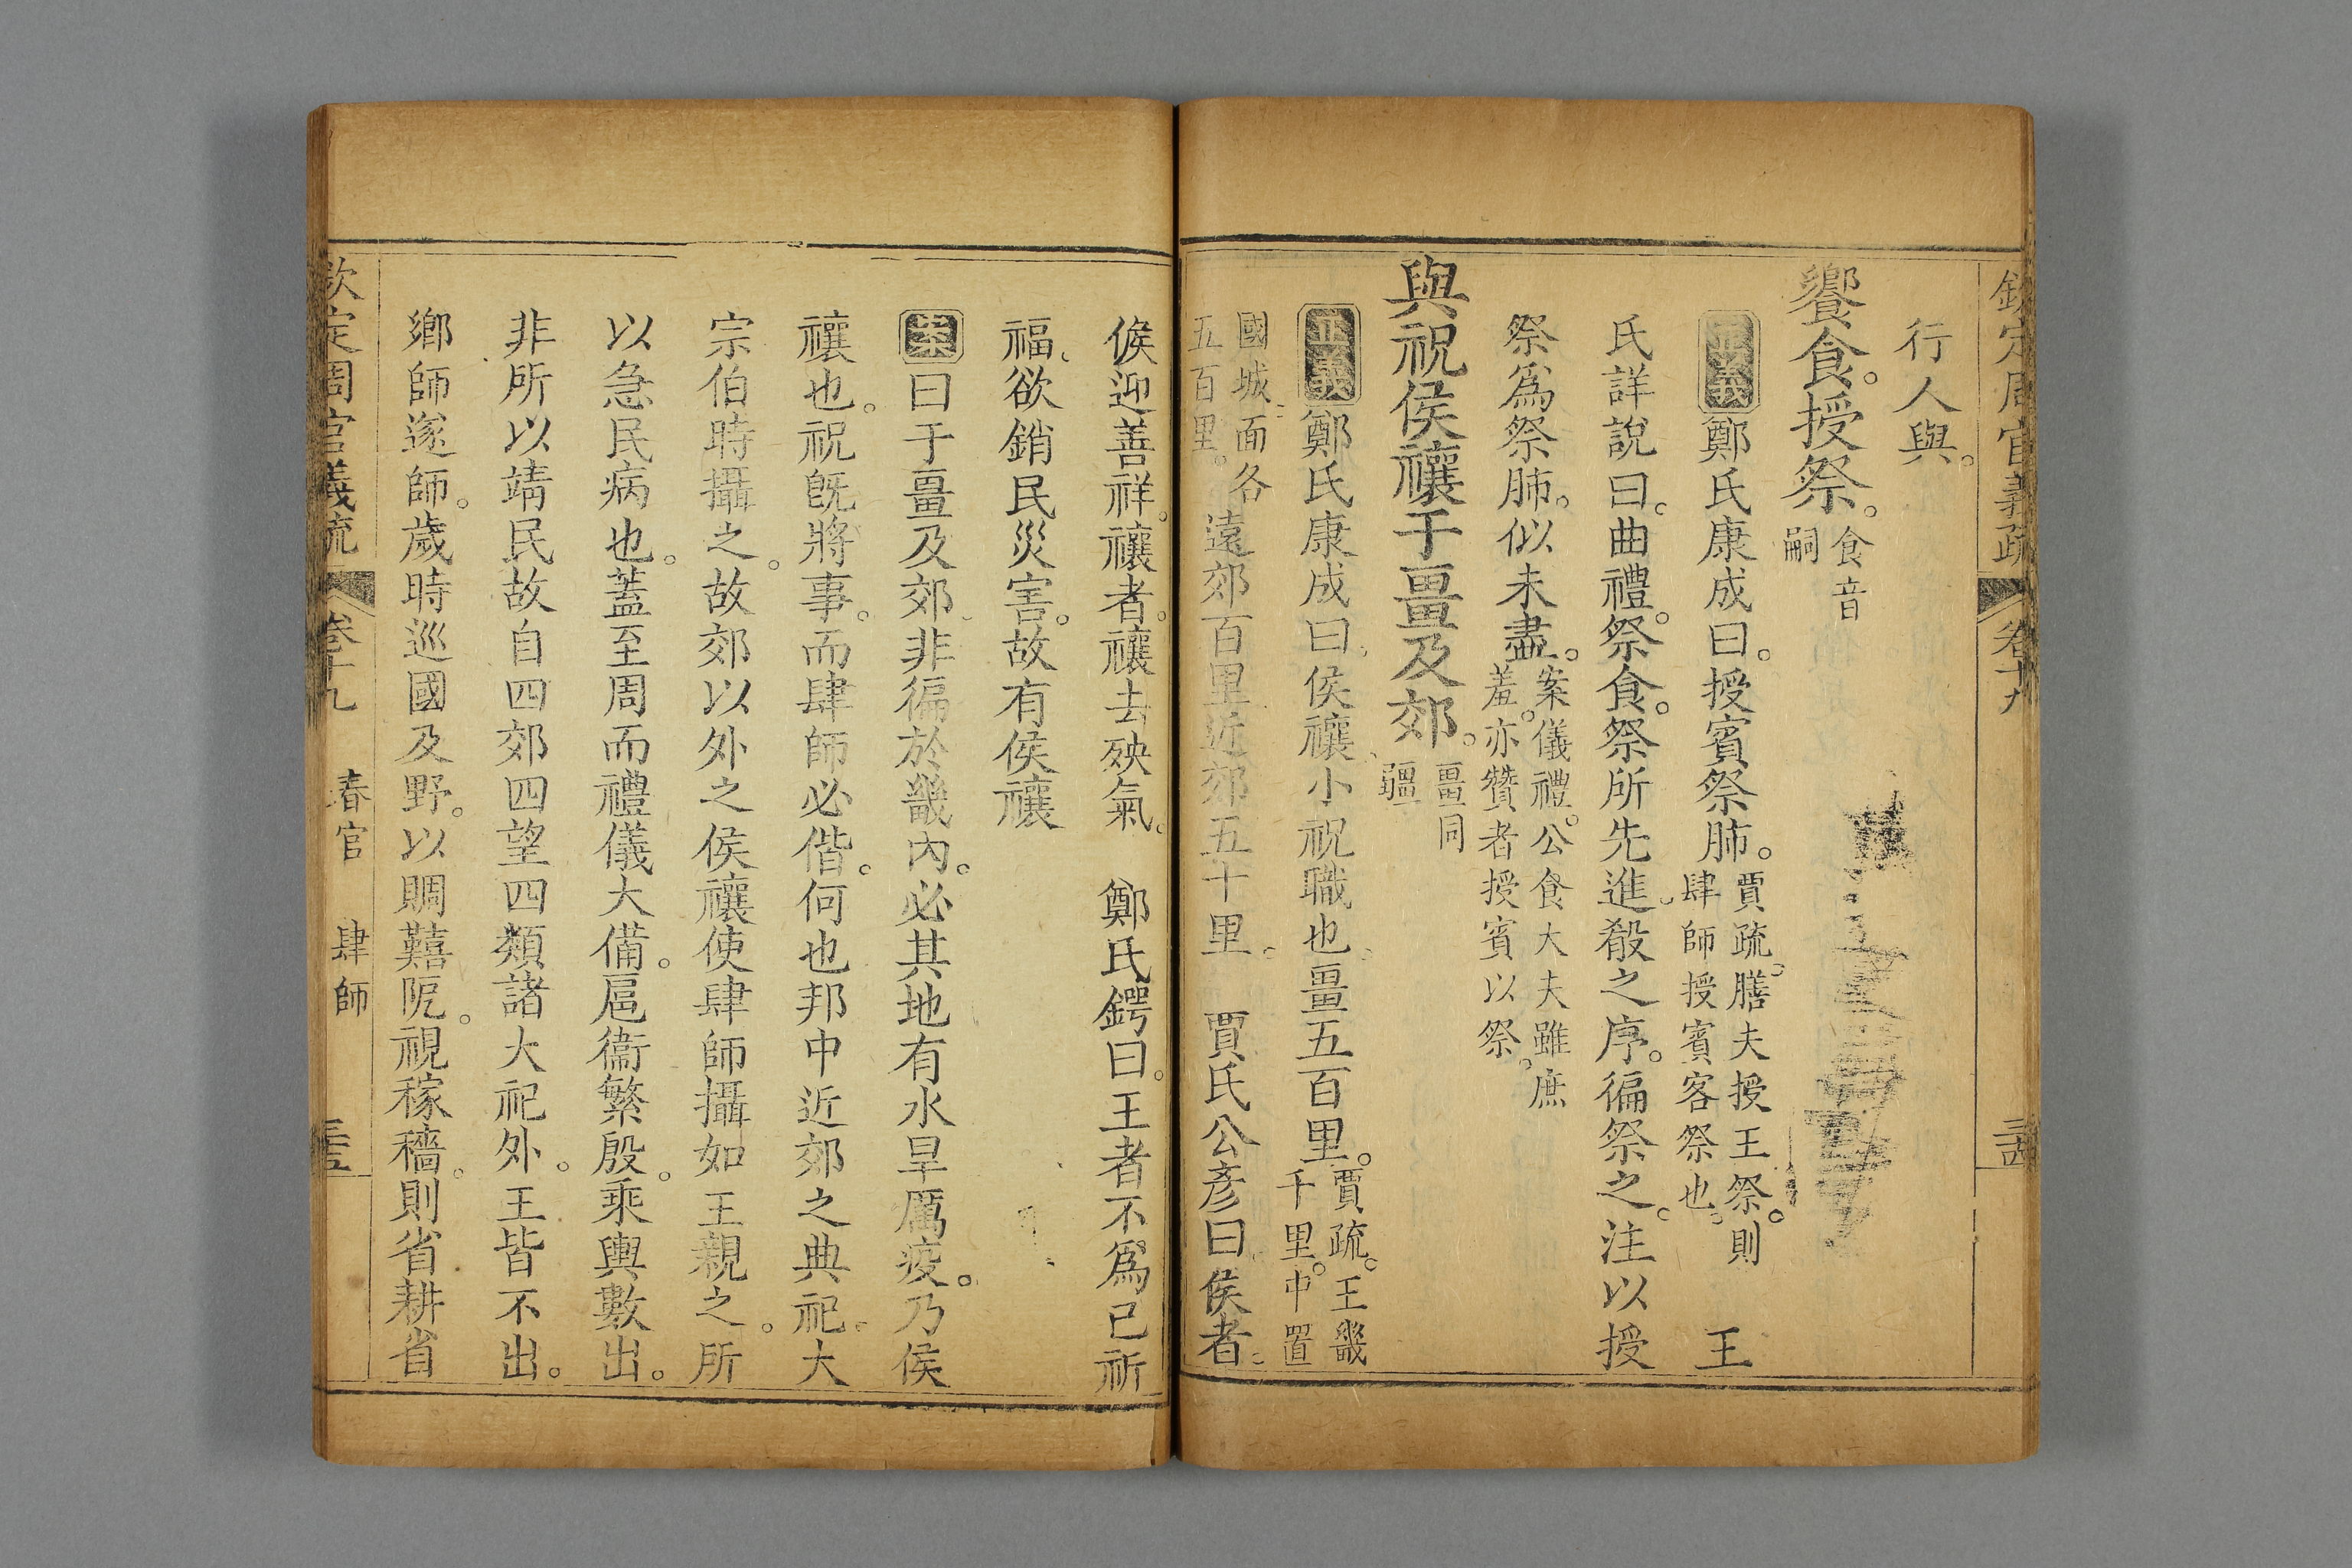 欽定周官義疏 卷十九 三四
行人與。
饗食。授祭。食音嗣
正義鄭氏康成曰。授賓祭肺。賈疏。膳夫授王祭。則肆師授賓客祭也。 王
氏詳說曰。曲禮。祭食。祭所先進。殽之序。徧祭之。注以授
祭爲祭肺。似未盡。案儀禮。公食大夫雖庶羞。亦贊者授賓以祭。
與祝侯禳于畺及郊。畺同疆
正義鄭氏康成曰。侯禳小祝職也。畺五百里。賈疏。王畿千里。中置
國城。面各五百里。遠郊百里近郊五十里。 賈氏公彥曰。侯者。
候迎善祥。禳者。禳去殃氣。 鄭氏鍔曰。王者不爲己祈
福。欲銷民災害。故有侯禳
案曰于畺及郊。非徧於畿內。必其地有水旱厲疫。乃侯
禳也。祝旣將事。而肆師必偕。何也邦中近郊之典祀。大
宗伯時攝之。故郊以外之侯禳使肆師攝如王親之。所
以急民病也。蓋至周而禮儀大備。扈衞繁殷。乘輿數出。
非所以靖民故自四郊四望四類諸大祀外。王皆不出。
鄉師遂師。歲時巡國及野。以賙囏阨。視稼穡。則省耕省
欽定周官義疏 卷十九 春官 肆師 三五